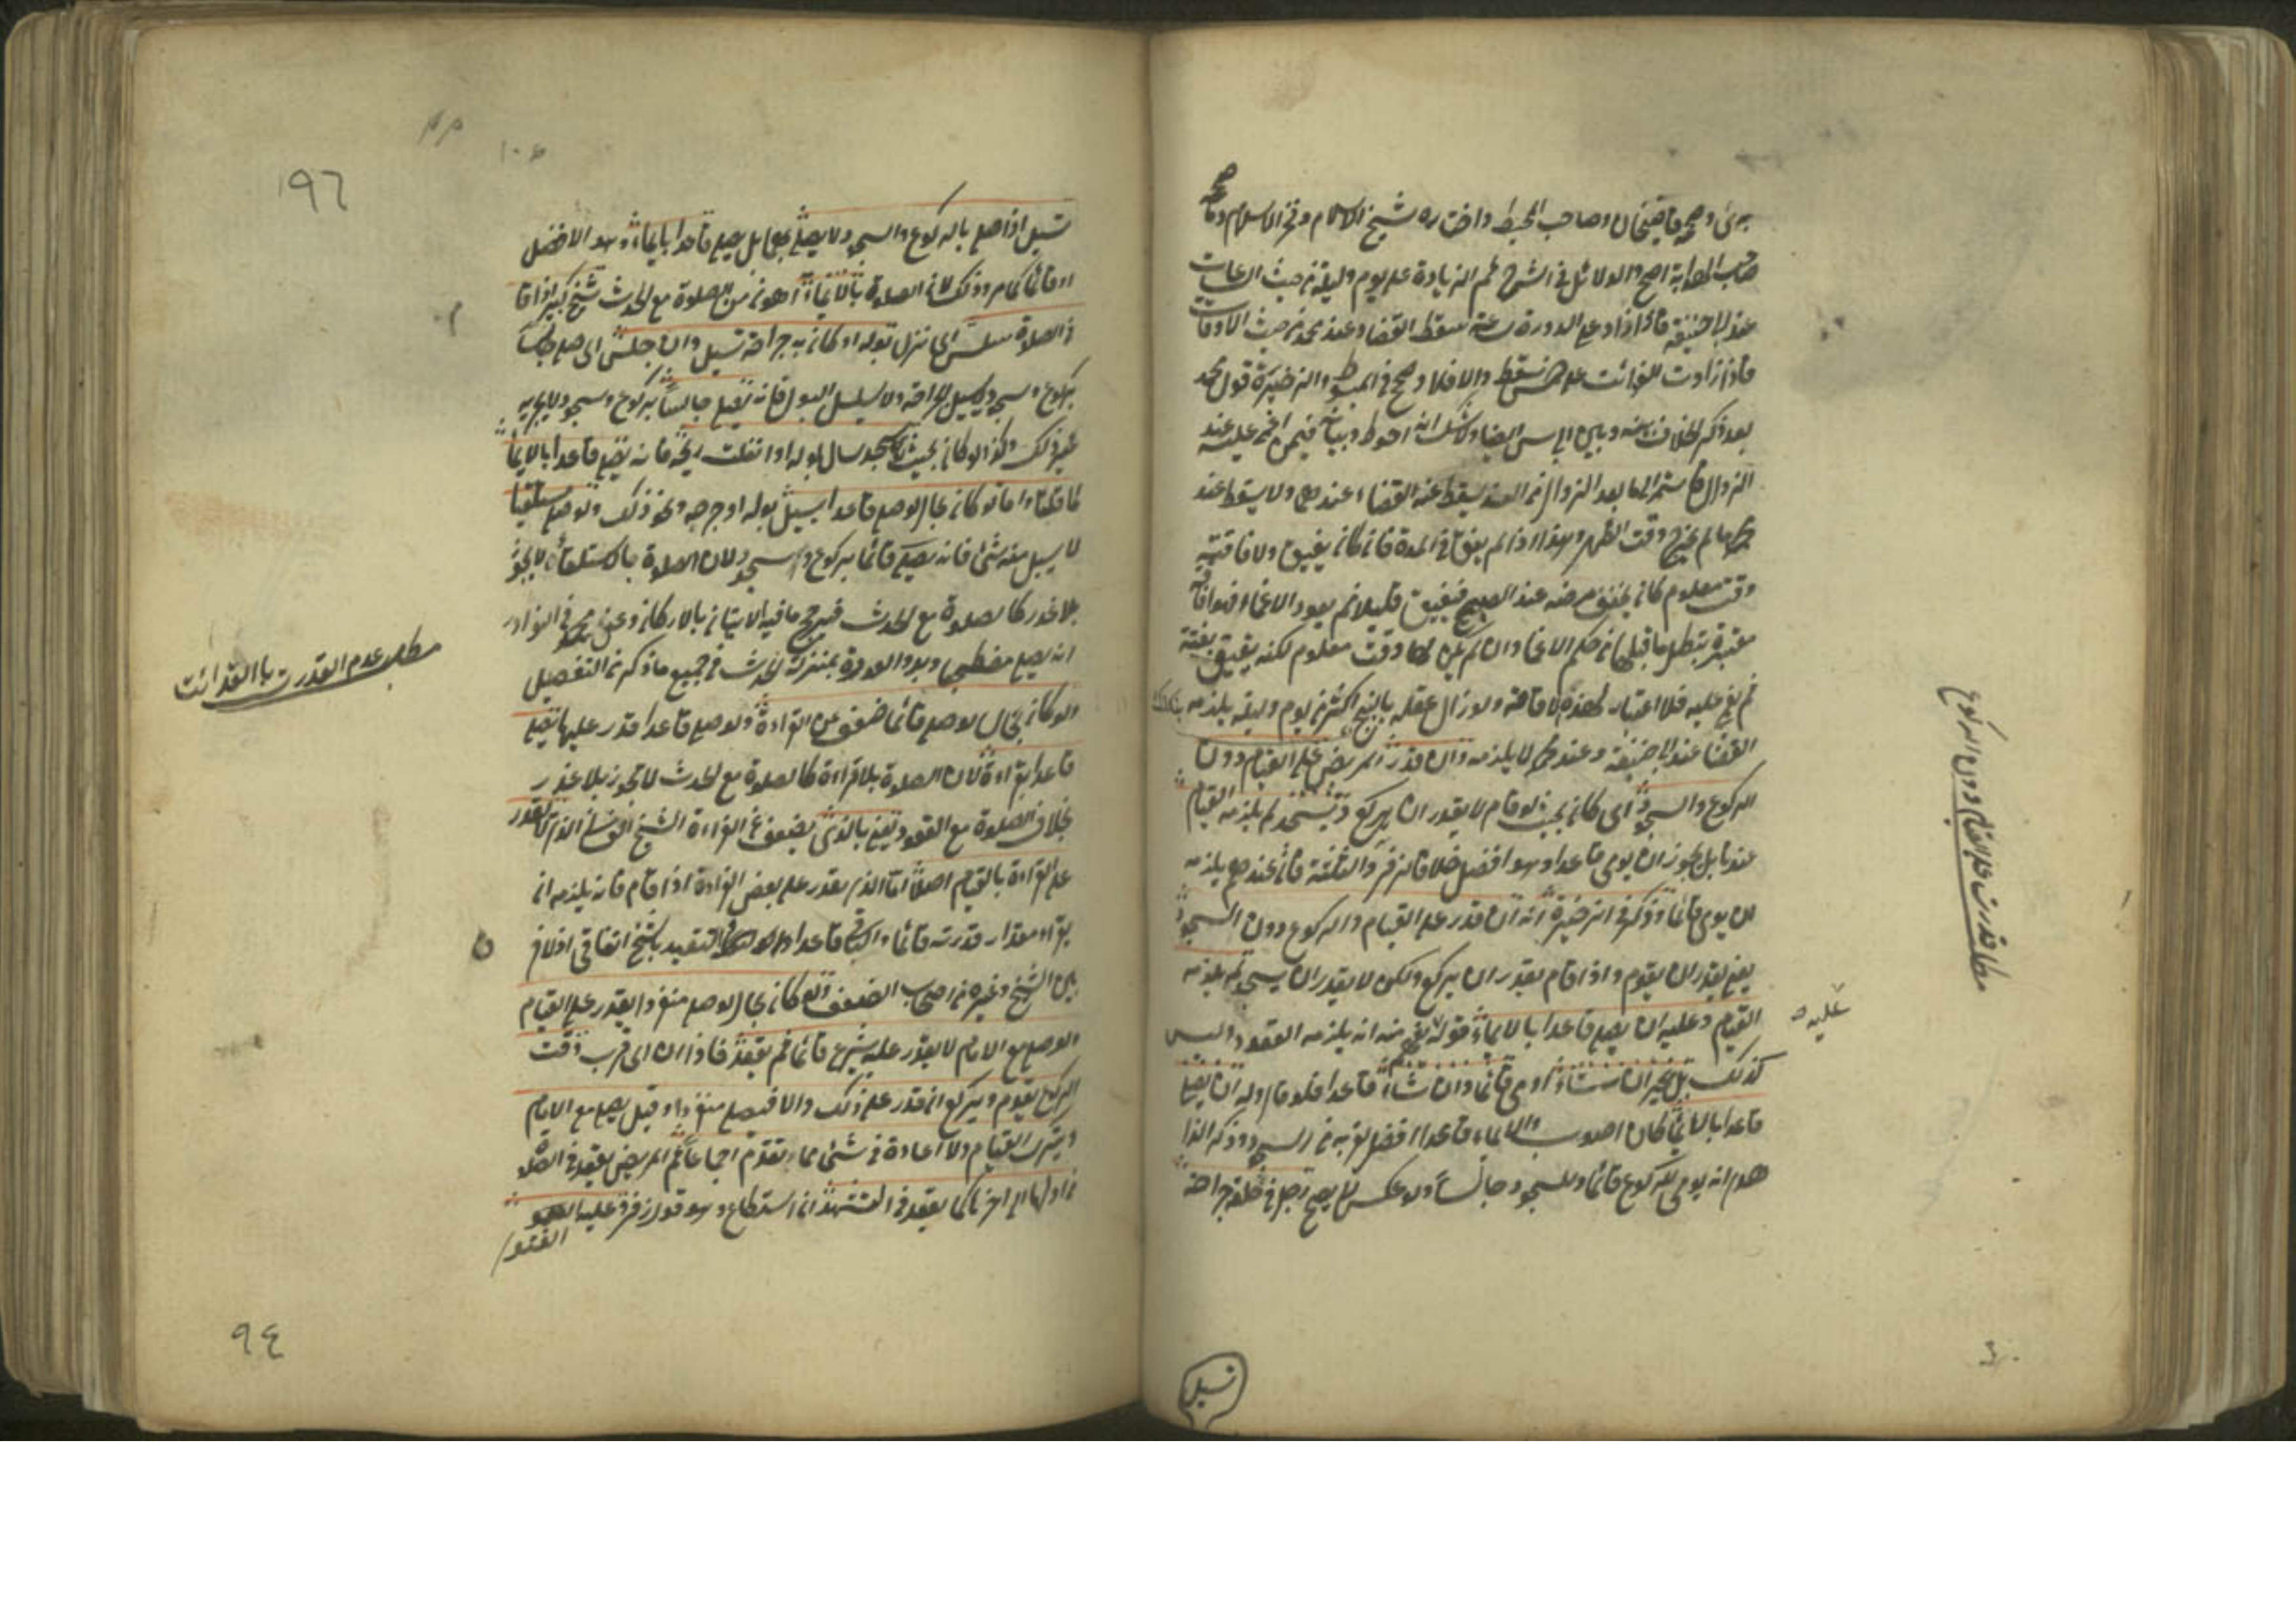 برئ وصححه قاضيخان وصاحب المحيط واختاره شيخ الاسلام وفخر الاسلام وقال
صاحب الهداية اصح والدلائل في الشرح ثم الزيادة على يوم وليلة من حيث الساعات
عند ابى حنيفة فاذا زاد على الدورة ساعة سقط القضاء وعند محمد من حيث الاوقات
فاذا زادت الفوائت على خمس سقط والا فلا وصح في المبسوط والذخيرة قول محمد
بعد ذكر الخلاف بينه وبين ابى يوسف ايضا ولا شك انه احوط وبيانه فيمن اغمى عليه عند
الزوال فاستمر الى ما بعد الزوال من الغد يسقط عنه القضاء عندهما ولا يسقط عند
محمد ما لم يخرج وقت الظهر وهذا اذا لم يفق في المدة فان كان يفيق ولافاقته
وقت معلوم كان يخفف مرضه عند الصبح فيفيق قليلا ثم يعود الاغماء فهو افاقة
معتبرة تبطل ما قبلها من حكم الاغماء وان لم يكن لها وقت معلوم لكنه يفيق بغتة
ثم يغمى عليه فلا اعتبار لهذه الافاقة ولو زال عقله بالبنج اكثر من يوم وليلة يلزمه
القضاء عند ابى حنيفة وعند محمد لا يلزمه وان قدر المريض على القيام دون
الركوع والسجود اى كان بحيث لو قام لا يقدر ان يركع ويسجد لم يلزمه القيام
عندنا بل يجوز ان يومى قاعدا وهو افضل خلافا لزفر والثلثة فان عندهم يلزمه
ان يومى قائما وذكر في الذخيرة انه ان قدر على القيام والركوع دون السجود
يعني يقدر ان يقوم واذا قام يقدر ان يركع ولكن لا يقدر ان يسجد لم يلزمه
القيام وعليه ان يصلى قاعدا بالايماء فقوله يفهم منه انه يلزمه القعود وليس
كذلك بل يخير ان شاء اومى قائما وان شاء قاعدا فلو قام وله ان يصلى
قاعدا بالايماء كان اصوب والايماء قاعدا افضل لقربه من السجود وذكر
انه يومى للركوع قائما وللسجود جالسا ولو عكس لا يصح رجل في حلقه جراحة
عليه
مطلب قدرت على القيام دون الركوع
تسيل
١٩٦
تسيل اذا صلى بالركوع والسجود لا يصلى بهما بل يصلى قاعدا بايماء وهو الافضل
او قائما كما مر وذلك لان الصلوة بالايماء اهون من الصلوة مع الحدث شيخ كبير اذا قام
في الصلوة سلس اى نزل بوله او كان به جراحة تسيل وان جلس اى صلى جالسا
بركوع وسجود لا تسيل الجراحة ولا يسلس البول فانه يصلى جالسا بركوع وسجود ولا يجزيه
غير ذلك وكذا لو كان بحيث لو سجد سال بوله او انفلت ريحه فانه يصلى قاعدا بالايماء
لما قلنا واما لو كان بحال لو صلى قاعدا يسيل بوله او جرحه ونحو ذلك ولو صلى مستلقيا
لا يسيل منه شئ فانه يصلى قائما بركوع وسجود لان الصلوة بالاستلقاء لا يجوز
بلا عذر كالصلوة مع الحدث فيرجح ما فيه الاتيان بالاركان وعن محمد في النوادر
انه يصلى مضطجعا وبدو العورة بمنزلة الحدث في جميع ما ذكر من التفصيل
ولو كان بحال لو صلى قائما ضعف عن القراءة ولو صلى قاعدا قدر عليها يصلى
قاعدا بقراءة لان الصلوة بلا قراءة كالصلوة مع الحدث لا تجوز بلا عذر
بخلاف الصلوة مع القعود يعني بالذى يضعف عن القراءة الشيخ الفانى الذى لا يقدر
على القراءة بالقيام اصلا اما الذى يقدر على بعض القراءة اذا قام فانه يلزمه ان
يقرا مقدار قدرته قائما والباقى قاعدا التقييد بالشيخ اتفاقى اذ لا فرق
بين الشيخ وغيره من اصحاب الضعف ولو كان بحال لو صلى منفردا يقدر على القيام
ولو صلى مع الامام لا يقدر عليه يشرع قائما ثم يقعد فاذا آن اى قرب وقت
الركوع يقوم ويركع ان قدر على ذلك والا فيصلى منفردا وقيل يصلى مع الامام
ويترك القيام ولا اعادة في شئ مما تقدم اجماعا ثم المريض يقعد في الصلوة
من اولها الى اخرها كما يقعد في التشهد ان استطاع وهو قول زفر وعليه
الفتوى
مطلب عدم القدرت با القرائت
٩٤